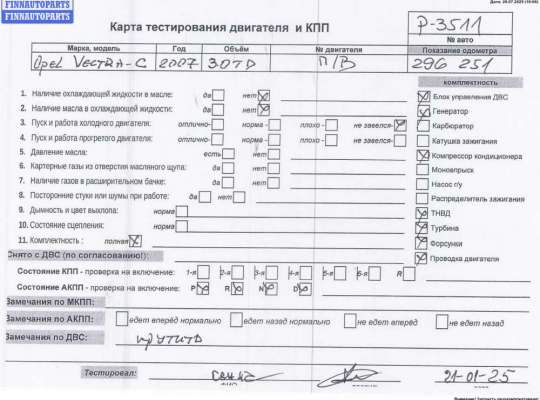 FINNAUTOPARTS
FINNAUTOPARTS
Карта тестирования двигателя и КПП
P-3511
№ авто
Марка, модель Год Объём № двигателя Показание одометра
Opel VECTRA-C 2007 3.0TD П/В 296 251
комплектность
1. Наличие охлаждающей жидкости в масле: да нет
Блок управления ДВС
2. Наличие масла в охлаждающей жидкости: да нет
Генератор
3. Пуск и работа холодного двигателя: отлично- норма - плохо - не завелся-
Карбюратор
4. Пуск и работа прогретого двигателя: отлично- норма - плохо - не завелся-
Катушка зажигания
5. Давление масла: есть нет
Компрессор кондиционера
6. Картерные газы из отверстия масляного щупа: да нет
Моновпрыск
7. Наличие газов в расширительном бачке: да нет
Насос г/у
8. Посторонние стуки или шумы при работе: да нет
Распределитель зажигания
9. Дымность и цвет выхлопа: норма
ТНВД
10. Состояние сцепления: норма
Турбина
11. Комплектность : полная
Форсунки
Снято с ДВС (по согласованию!):
Проводка двигателя
Состояние КПП - проверка на включение: 1-я 2-я 3-я 4-я 5-я 6-я R
Состояние АКПП - проверка на включение: P R N D
Замечания по МКПП:
Замечания по АКПП: едет вперёд нормально едет назад нормально не едет вперёд не едет назад
Замечания по ДВС: крутить
Тестировал: 21-01-25